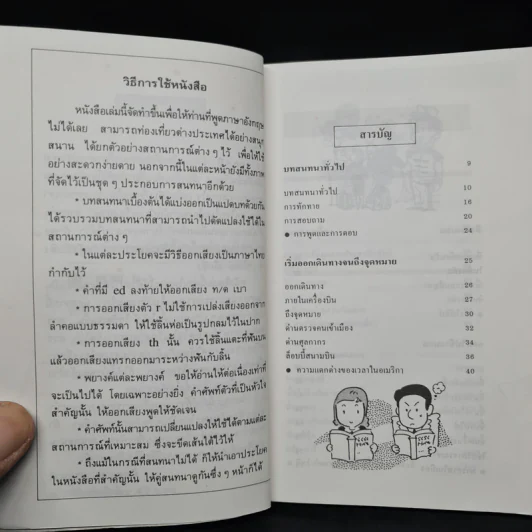 วิธีการใช้หนังสือ
หนังสือเล่มนี้จัดทำขึ้นเพื่อให้ท่านที่พูดภาษาอังกฤษ
ไม่ได้เลย สามารถท่องเที่ยวต่างประเทศได้อย่างสนุก
สนาน ได้ยกตัวอย่างสถานการณ์ต่าง ๆ ไว้ เพื่อให้ใช้
อย่างสะดวกง่ายดาย นอกจากนี้ในแต่ละหน้ายังมีทั้งภาพ
ที่จัดไว้เป็นชุด ๆ ประกอบการสนทนาอีกด้วย
• บทสนทนาเบื้องต้นได้แบ่งออกเป็นแปดบทด้วยกัน
ได้รวบรวมบทสนทนาที่สามารถนำไปดัดแปลงใช้ได้ใน
สถานการณ์ต่าง ๆ
• ในแต่ละประโยคจะมีวิธีออกเสียงเป็นภาษาไทย
กำกับไว้
• คำที่มี ed ลงท้ายให้ออกเสียง ท/ด เบา
• การออกเสียงตัว r ไม่ใช้การเปล่งเสียงออกจาก
ลำคอแบบธรรมดา ให้ใช้ลิ้นห่อเป็นรูปกลมไว้ในปาก
• การออกเสียง th นั้น ควรใช้ลิ้นแตะที่ฟันบน
แล้วออกเสียงแทรกออกมาระหว่างฟันกับลิ้น
• พยางค์แต่ละพยางค์ ขอให้อ่านให้ต่อเนื่องเท่าที่
จะเป็นไปได้ โดยเฉพาะอย่างยิ่ง คำศัพท์ตัวที่เป็นหัวใจ
สำคัญนั้น ให้ออกเสียงพูดให้ชัดเจน
• คำศัพท์นั้นสามารถเปลี่ยนแปลงให้ใช้ได้ตามแต่ละ
สถานการณ์ที่เหมาะสม ซึ่งจะขีดเส้นใต้ไว้ให้
• ถึงแม้ในกรณีที่สนทนาไม่ได้ ก็ให้นำเอาประโยค
ในหนังสือที่สำคัญนั้น ให้คู่สนทนาดูกันซึ่ง ๆ หน้าก็ได้
สารบัญ
บทสนทนาทั่วไป 9
บทสนทนาทั่วไป 10
การทักทาย 16
การสอบถาม 20
● การพูดและการตอบ 24
เริ่มออกเดินทางจนถึงจุดหมาย 25
ออกเดินทาง 26
ภายในเครื่องบิน 27
ถึงจุดหมาย 30
ด่านตรวจคนเข้าเมือง 32
ด่านศุลกากร 34
ล็อบบี้สนามบิน 36
● ความแตกต่างของเวลาในอเมริกา 40